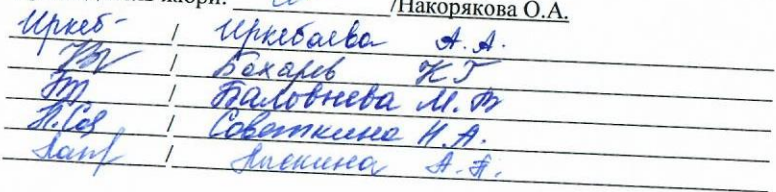 жюри: /Накорякова О.А.
Иркеб- / Иркебаева А.А.
/ Бахарев К Г
/ Баловнева М. В
Н.Сов / Советкина Н.А.
/ А. П.